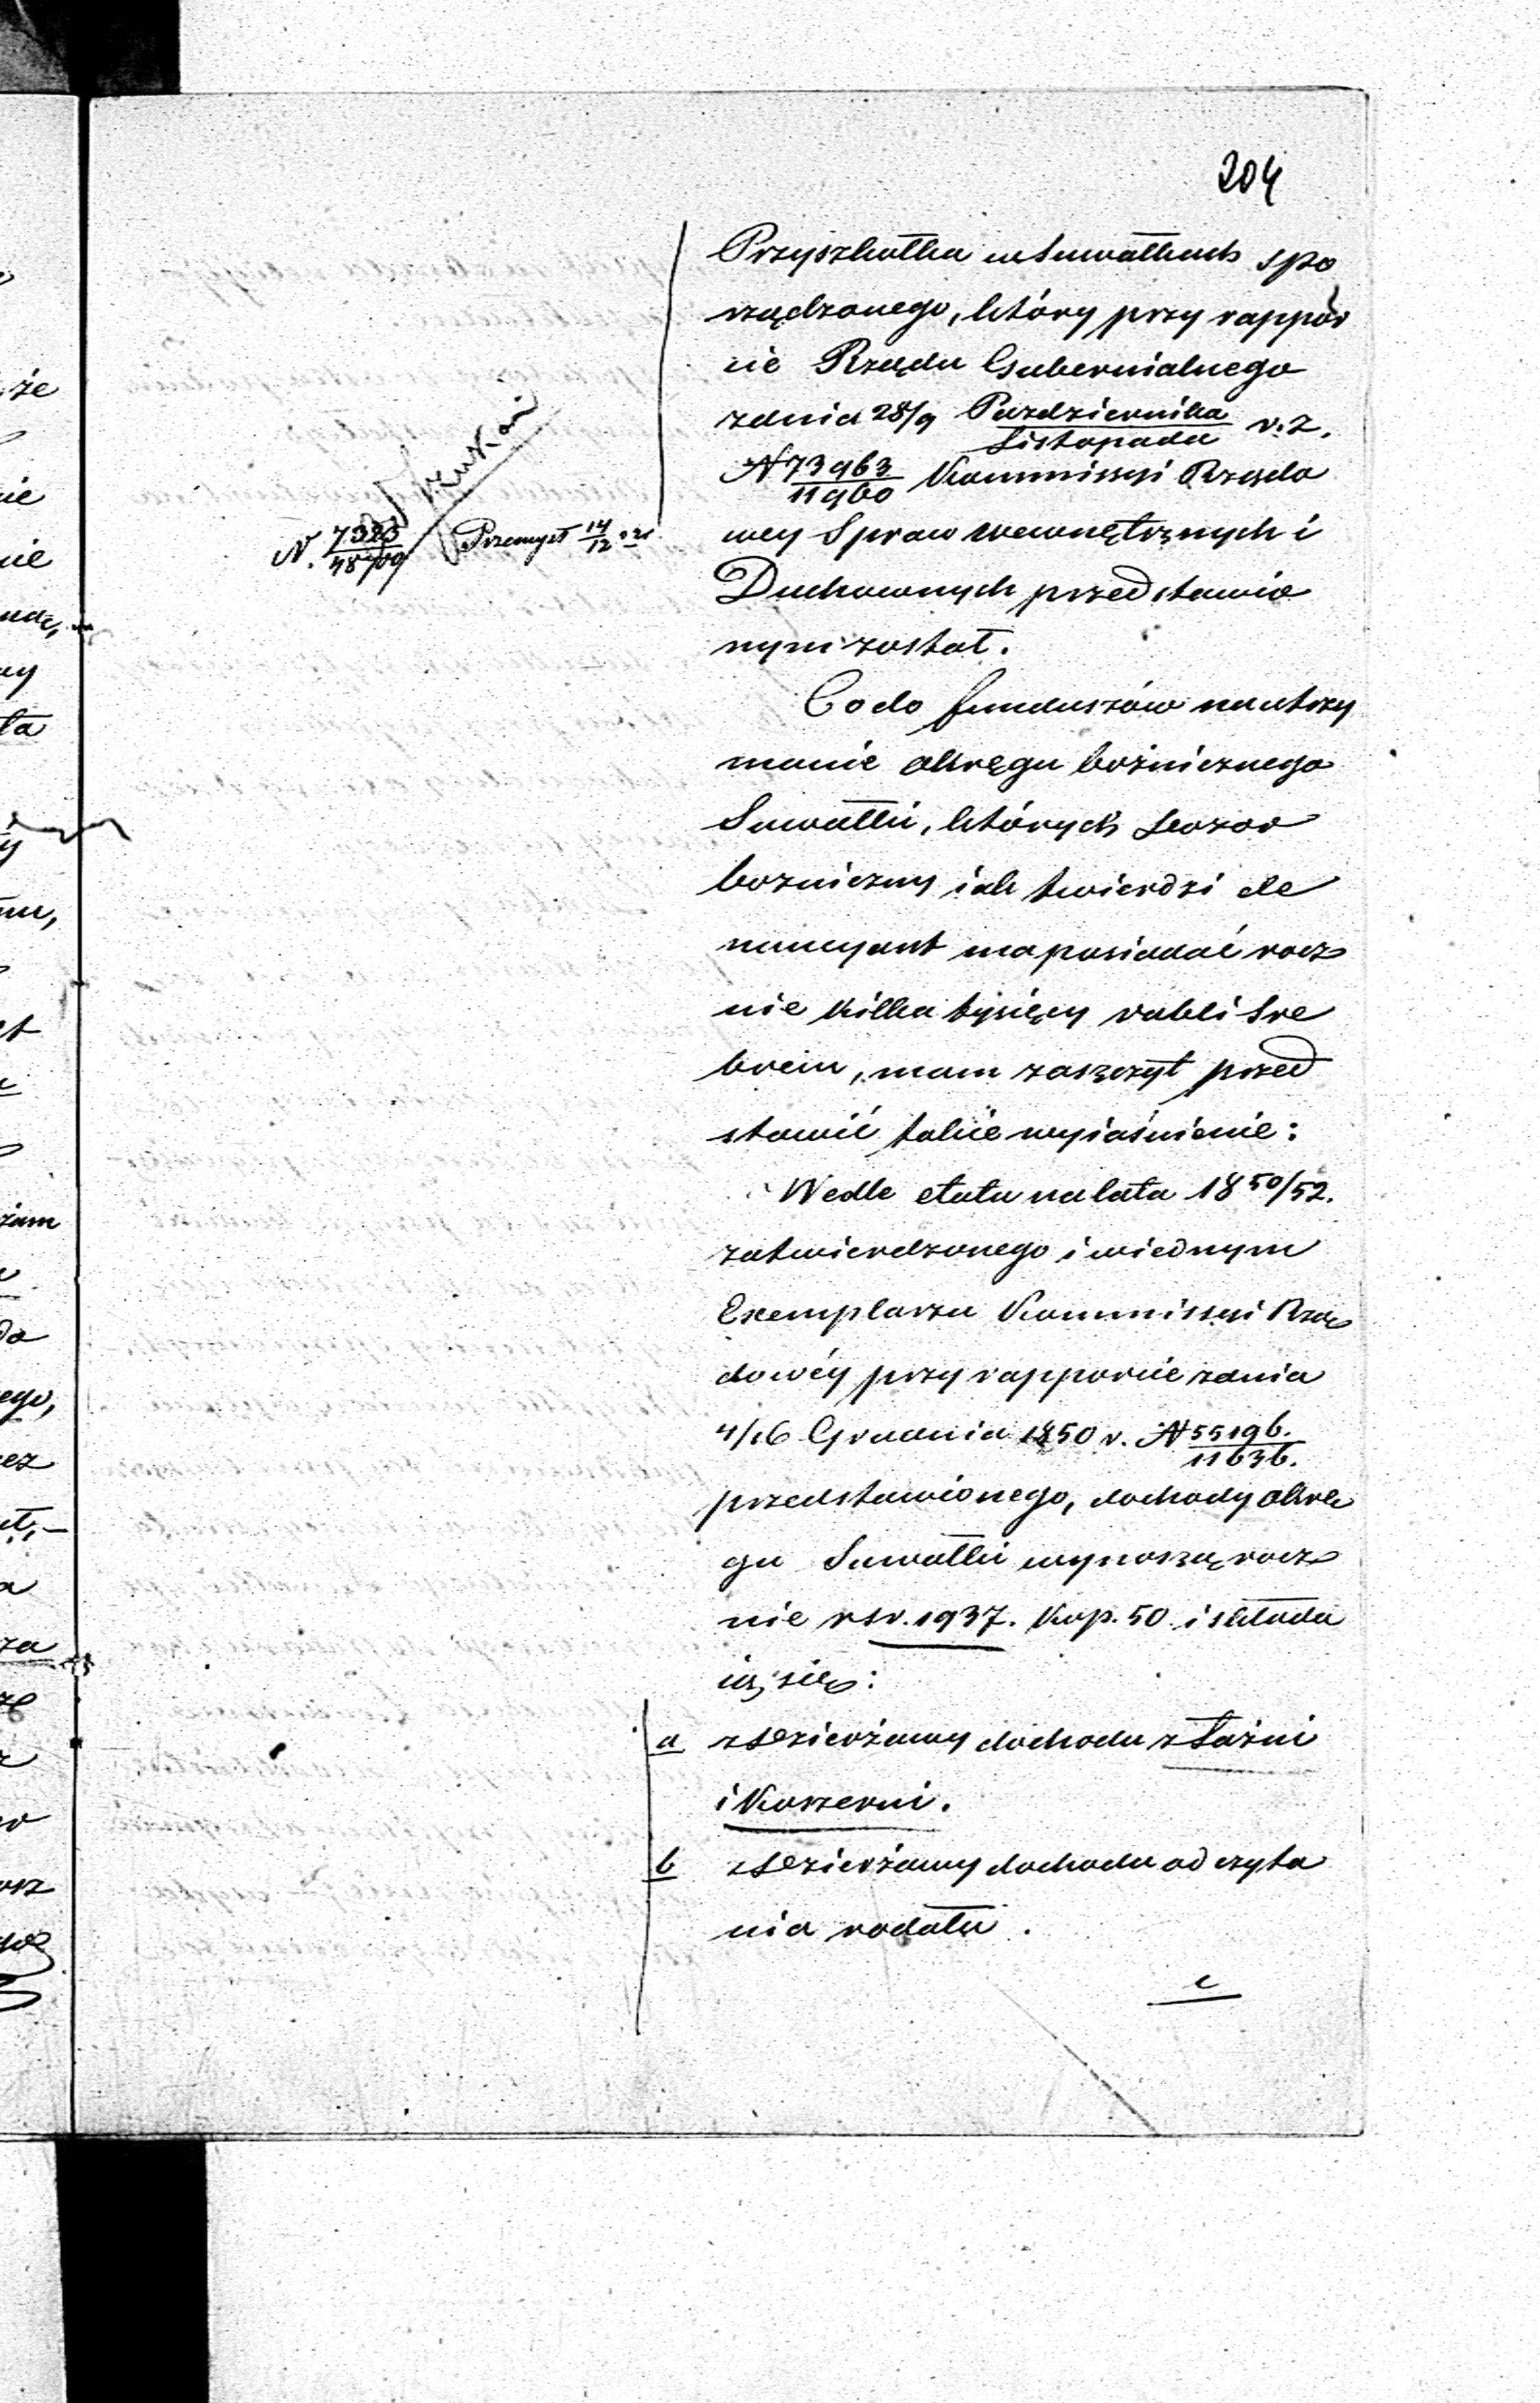 204
Przyszkotka w Suwałkach spo
rządzonego, który przy rappór
cie Rządu Gubernialnego
z dnia 28/9 Października/Listopada r. z.
N 73963/11960 Kommissyi Rządo
wey Spraw wewnętrznych i
Duchownych przedstawio
nym został.
Szukać
N. 7323/48700 Przemysł 14/12
Co do funduszów na utrzy
manie okręgu bożniczego
Suwałki, których Dozor
bożniczny iak twierdzi de
nuncyant ma posiadać rocz
nie kilka tysięcy rubli sre
brem, mam zaszczyt przed
stawić takie wyiaśnienie:
Wedle etatu na lata 1850/52.
zatwierdzonego i w iednym
Exemplarzu Kommissyi Rzą
dowéy przy rapporcie z dnia
4/16 Grudnia 1850 r. N 55196./11636.
przedstawionego, dochody okrę
gu Suwałki wynoszą rocz
nie rsr. 1937. Kop. 50 i składa
ią się:
a z Dzierżawy dochodu z Łaźni
i Koszerni.
b z Dzierżawy dochodu od czyta
nia rodału.
c